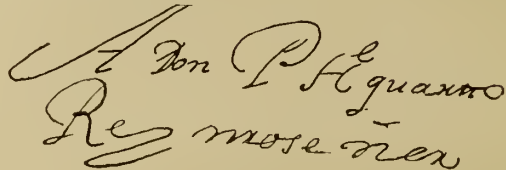 A Don P HEguarro
Rey mose ñer